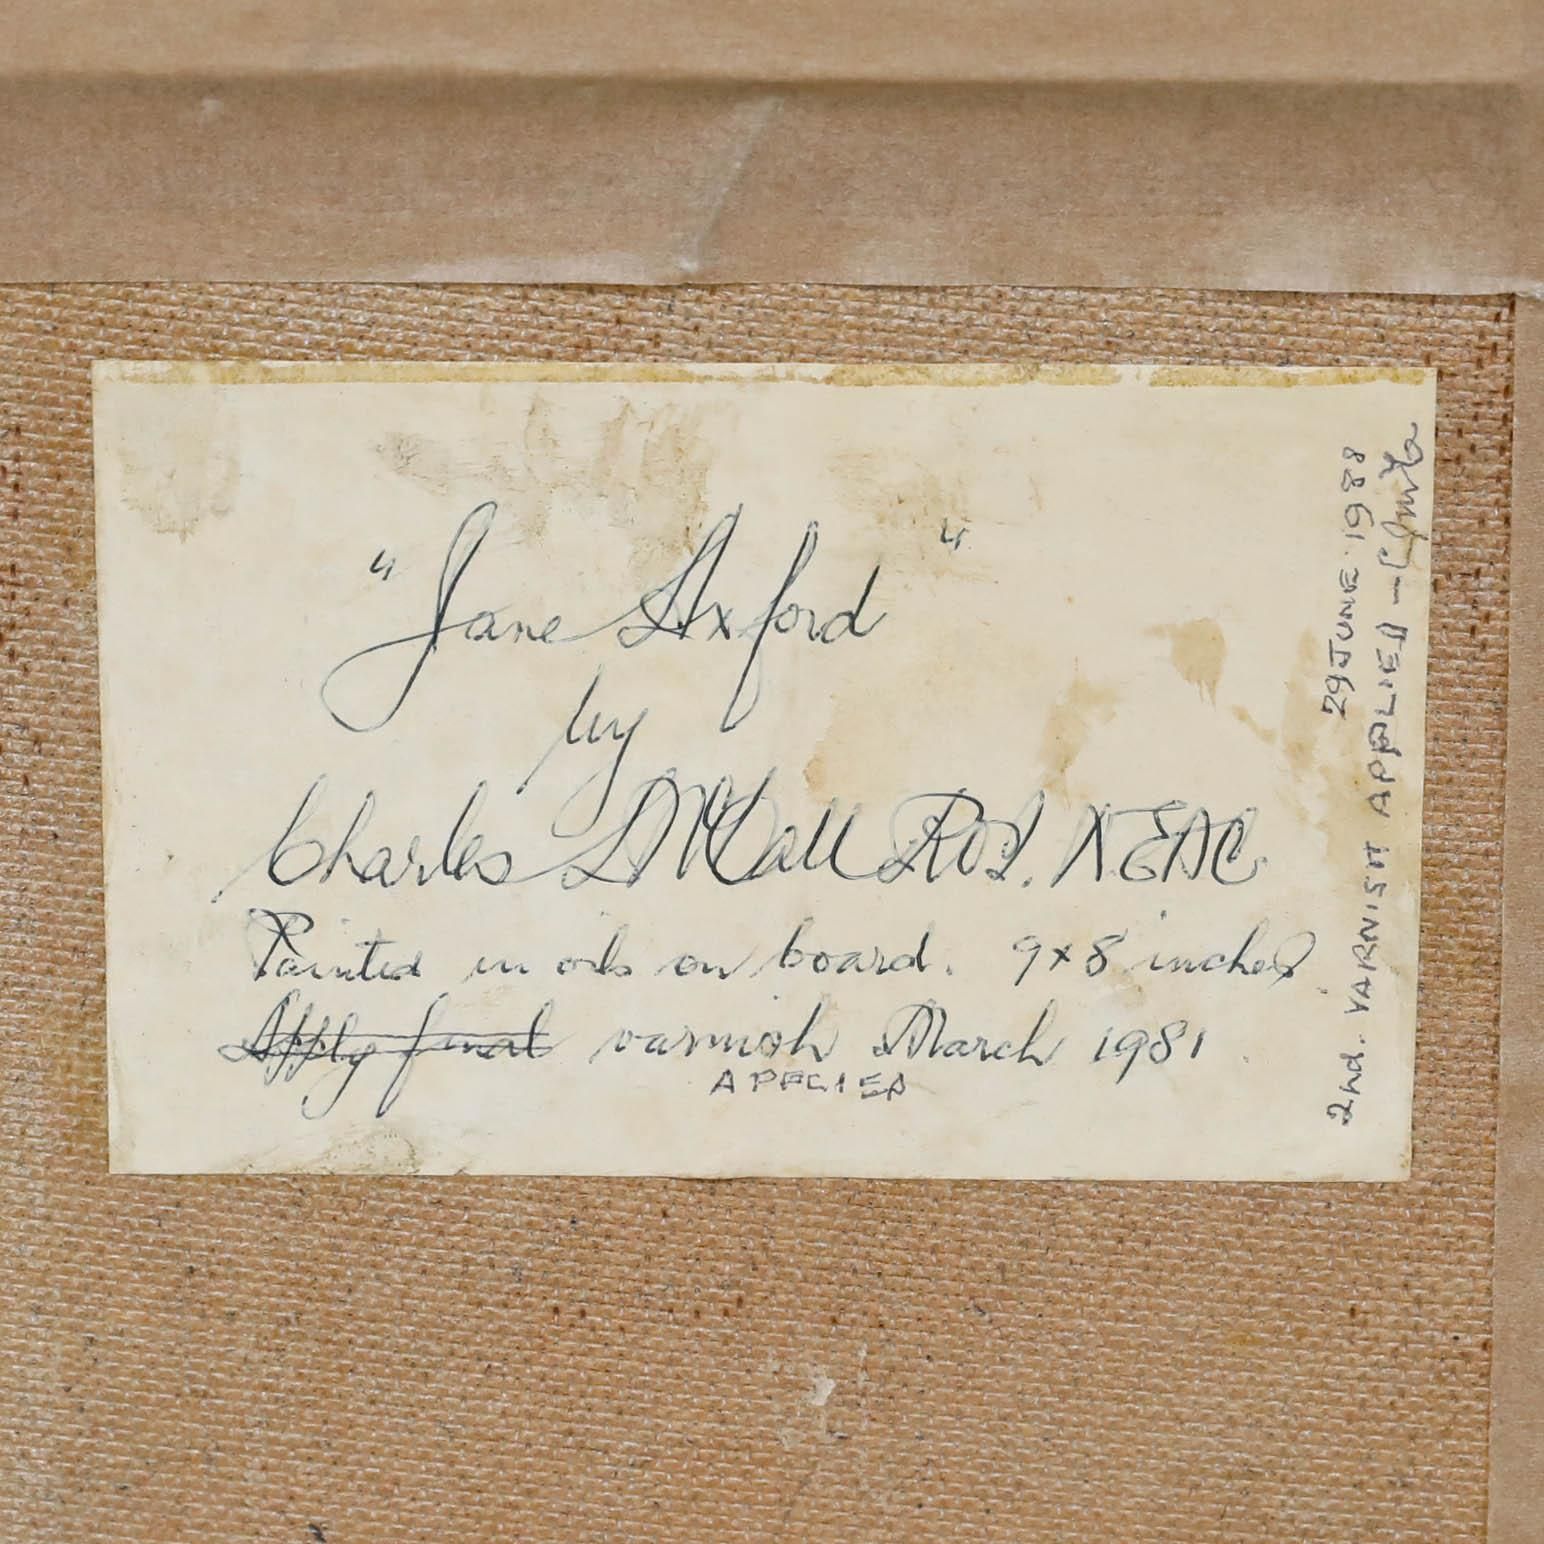 "Jane Axford"
by
Charles McCall ROI. NEAC.
Painted in oils on board. 9 x 8 inches.
Apply final varnish March 1981.
APPLIED
29 JUNE 1988
2nd. VARNISH APPLIED —